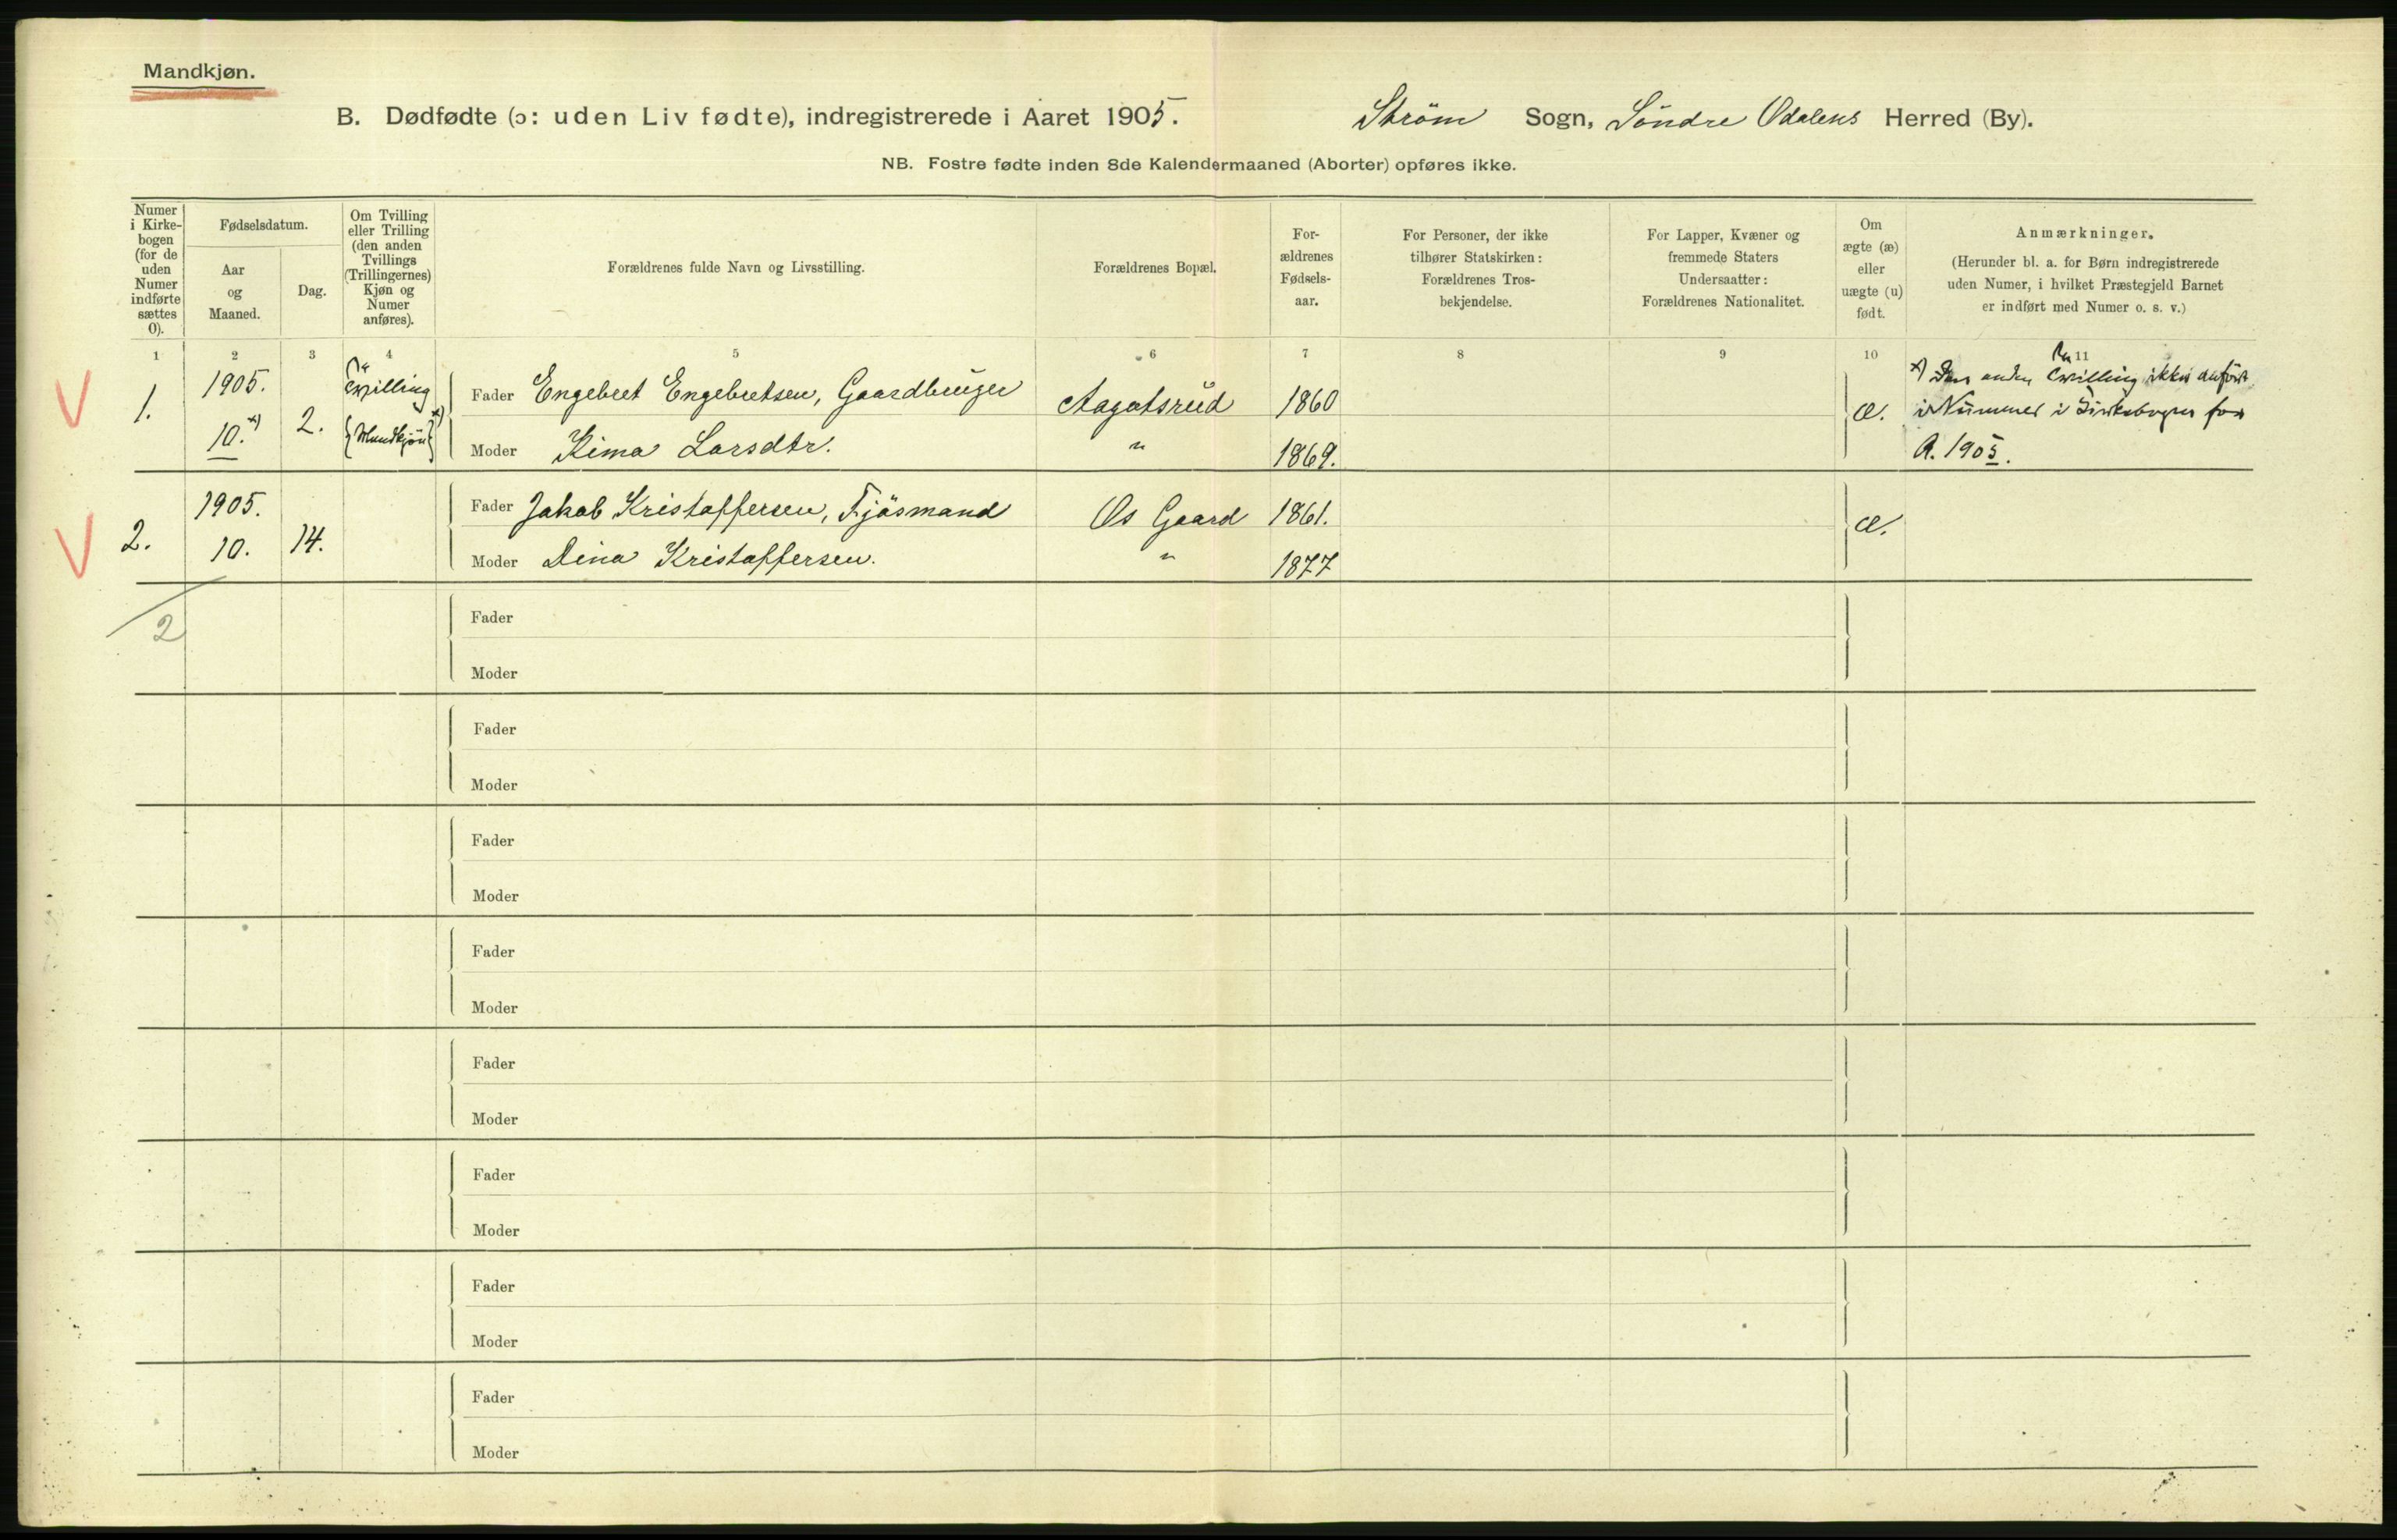 Mandkjøn.
B. Dødfødte (ɔ: uden Liv fødte), indregistrerede i Aaret 1905. Strøm Sogn, Söndre Odalens Herred (By).
NB. Fostre fødte inden 8de Kalendermaaned (Aborter) opføres ikke.
Numer
i Kirke-
bogen
(for de
uden
Numer
indførte
sættes
0).
Fødselsdatum.
Aar
og
Maaned.
Dag.
Om Tvilling
eller Trilling
(den anden
Tvillings
(Trillingernes)
Kjøn og
Numer
anføres).
Forældrenes fulde Navn og Livsstilling.
Forældrenes Bopæl.
For-
ældrenes
Fødsels-
aar.
For Personer, der ikke
tilhører Statskirken:
Forældrenes Tros-
bekjendelse.
For Lapper, Kvæner og
fremmede Staters
Undersaatter:
Forældrenes Nationalitet.
Om
ægte (æ)
eller
uægte (u)
født.
Anmærkninger.
(Herunder bl. a. for Børn indregistrerede
uden Numer, i hvilket Præstegjeld Barnet
er indført med Numer o. s. v.)
1 2 3 4 5 6 7 8 9 10 11
1. 1905. 10. *) 2. Tvilling {Mandkjön} *)
Fader Engebret Engebretsen, Gaardbruger Aagotsrud 1860
Moder Kima Larsdtr. " 1869.
æ.
*) Den anden Tvilling ikke anført
i Nummer i Kirkebogen for
A. 1905.
2. 1905. 10. 14.
Fader Jakob Kristoffersen, Fjösmand Os Gaard 1861.
Moder Dina Kristoffersen. " 1877
æ.
2
Fader
Moder
Fader
Moder
Fader
Moder
Fader
Moder
Fader
Moder
Fader
Moder
Fader
Moder
Fader
Moder